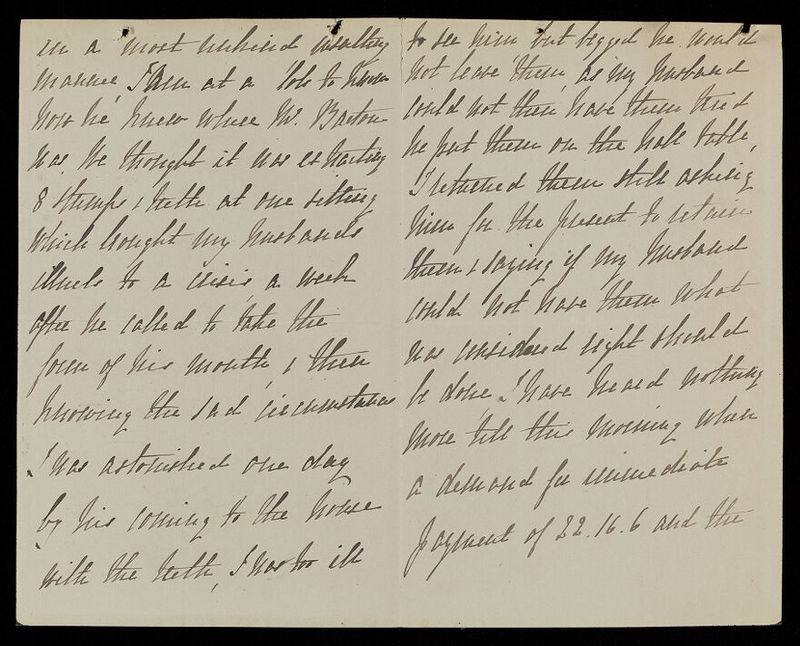 in a most unkind
manner, I am at a loss to know
how he knew where Mr. Barton
was, he thought it was extracting
8 stumps & teeth at one sitting
which brought my husbands
illness to a crisis, a week
after he called to take the
form of his mouth, & then
knowing the sad circumstances
I was astonished one day
by his coming to the house
with the teeth, I was too ill
to see him but begged he would
not leave them, as my husband
could not then have them tried
he put them on the hall table,
I returned them still asking
him for the present to retain
them & saying if my husband
could not have them what
was considered right should
be done, I have heard nothing
more till this morning when
a demand for immediate
payment of 22.16.6 and the